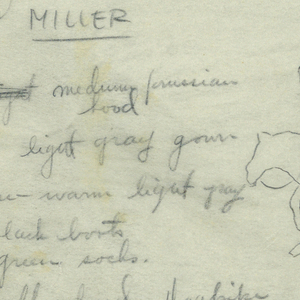 MILLER
medium prussian
hood
light gray gown
warm light gray
black boots
green socks.